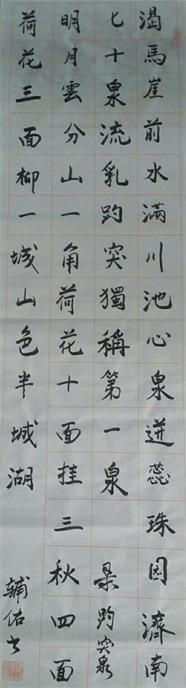 渴馬崖前水滿川池心泉迸蕊珠圓濟南
七十泉流乳趵突獨稱第一泉 晏趵突泉
明月雲分山一角荷花十面挂三秋四面
荷花三面柳一城山色半城湖
輔佑书